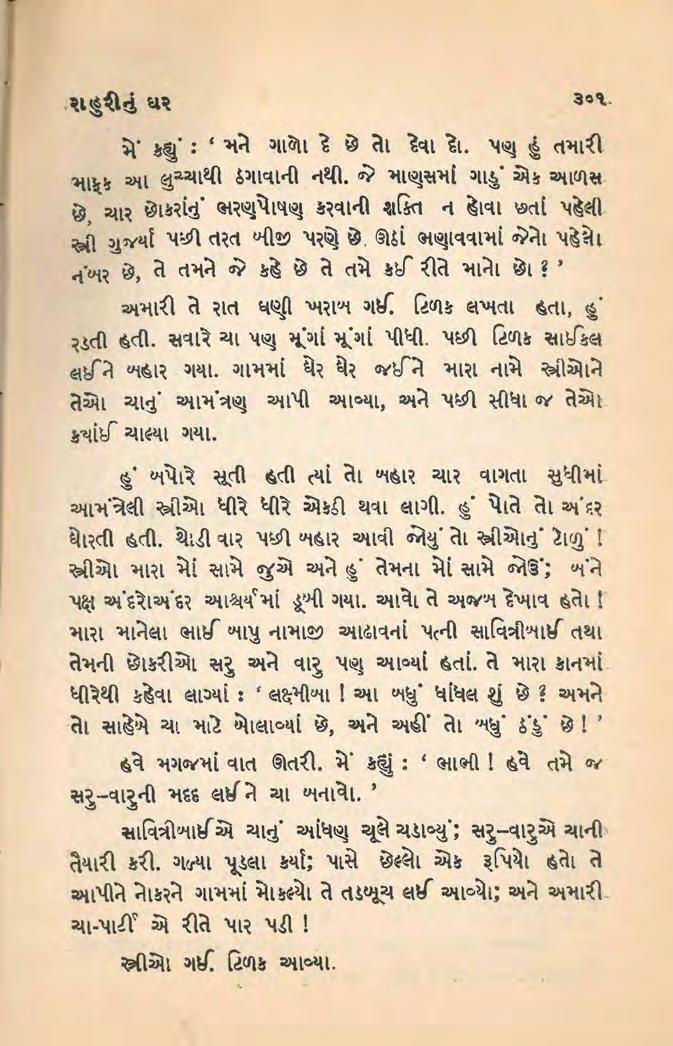 રાહુરીનું ઘર ૩૦૧
મેં કહ્યું : ‘ મને ગાળો દે છે તો દેવા દો. પણ હું તમારી
માફક આ લુચ્ચાથી ઠગાવાની નથી. જે માણસમાં ગાડું એક આળસ
છે, ચાર છોકરાંનું ભરણપોષણ કરવાની શક્તિ ન હોવા છતાં પહેલી
સ્ત્રી ગુજર્યા પછી તરત બીજી પરણે છે. ઊઠાં ભણાવવામાં જેનો પહેલો
નંબર છે, તે તમને જે કહે છે તે તમે કઈ રીતે માનો છો ? ’
અમારી તે રાત ઘણી ખરાબ ગઈ. ટિળક લખતા હતા, હું
રડતી હતી. સવારે ચા પણ મૂંગાં મૂંગાં પીધી. પછી ટિળક સાઈકલ
લઈને બહાર ગયા. ગામમાં ઘેર ઘેર જઈને મારા નામે સ્ત્રીઓને
તેઓ ચાનું આમંત્રણ આપી આવ્યા, અને પછી સીધા જ તેઓ
કયાંઈ ચાલ્યા ગયા.
હું બપોરે સૂતી હતી ત્યાં તો બહાર ચાર વાગતા સુધીમાં
આમંત્રેલી સ્ત્રીઓ ધીરે ધીરે એકઠી થવા લાગી. હું પોતે તો અંદર
ઘોરતી હતી. થોડી વાર પછી બહાર આવી જોયું તો સ્ત્રીઓનું ટોળું !
સ્ત્રીઓ મારા મોં સામે જુએ અને હું તેમના મોં સામે જોઉં; બંને
પક્ષ અંદરોઅંદર આશ્ચર્યમાં ડૂબી ગયા. આવો તે અજબ દેખાવ હતો !
મારા માનેલા ભાઈ બાપુ નામાજી આઢાવનાં પત્ની સાવિત્રીબાઈ તથા
તેમની છોકરીઓ સરુ અને વારુ પણ આવ્યાં હતાં. તે મારા કાનમાં
ધીરેથી કહેવા લાગ્યાં : ‘ લક્ષ્મીબા ! આ બધું ધાંધલ શું છે ? અમને
તો સાહેબે ચા માટે બોલાવ્યાં છે, અને અહીં તો બધું ઠંડું છે ! ’
હવે મગજમાં વાત ઊતરી. મેં કહ્યું : ‘ ભાભી ! હવે તમે જ
સરુ–વારુની મદદ લઈને ચા બનાવો. ’
સાવિત્રીબાઈએ ચાનું આંધણ ચૂલે ચડાવ્યું; સરુ–વારુએ ચાની
તૈયારી કરી. ગળ્યા પૂડલા કર્યા; પાસે છેલ્લો એક રૂપિયો હતો તે
આપીને નોકરને ગામમાં મોકલ્યો તે તડબૂચ લઈ આવ્યો; અને અમારી
ચા-પાર્ટી એ રીતે પાર પડી !
સ્ત્રીઓ ગઈ. ટિળક આવ્યા.